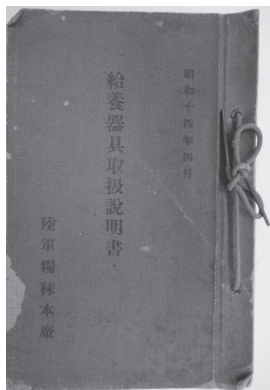 昭和十四年四月
給養器具取扱說明書
陸軍糧秣本廠